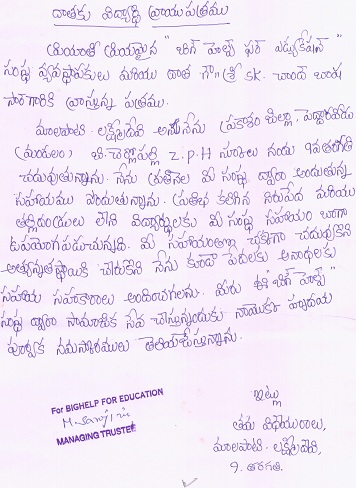 దాతకు విద్యార్థి వ్రాయు పత్రము
ప్రియాతి ప్రియమైన " బిగ్ హెల్ప్ ఫర్ ఎడ్యుకేషన్ "
సంస్థ వ్యవస్థాపకులు మరియు దాత గౌ" శ్రీ SK. చాంద్ బాషు
సార్ గారికి వ్రాస్తున్న పత్రము.
మాలపాటి. లక్ష్మీదేవి అను నేను ప్రకాశం జిల్లా, పెద్దారవీడు
(మండలం) బి. చెర్లోపల్లి Z.P.H స్కూలు నందు 9వ తరగతి
చదువుతున్నాను. నేను ప్రతినెల మీ సంస్థ ద్వారా అందుతున్న
సహాయము పొందుతున్నాను. ప్రతిభ కలిగిన నిరుపేద మరియు
తల్లిదండ్రులు లేని విద్యార్థులకు మీ సంస్థ సహాయం బాగా
ఉపయోగపడుచున్నది. మీ సహాయంతో చక్కగా చదువుకొని
అత్యున్నత స్థాయికి చేరుకొని నేను కూడా పేదలకు అనాధలకు
సహాయ సహకారాలు అందించగలను. మీరు ఈ "బిగ్ హెల్ప్"
సంస్థ ద్వారా సామాజిక సేవ చేస్తున్నందుకు నాయొక్క హృదయ
పూర్వక నమస్కారములు తెలియజేస్తున్నాను.
ఇట్లు
తమ విధేయురాలు,
మాలపాటి. లక్ష్మీదేవి,
9. తరగతి.
For BIGHELP FOR EDUCATION
MANAGING TRUSTEE